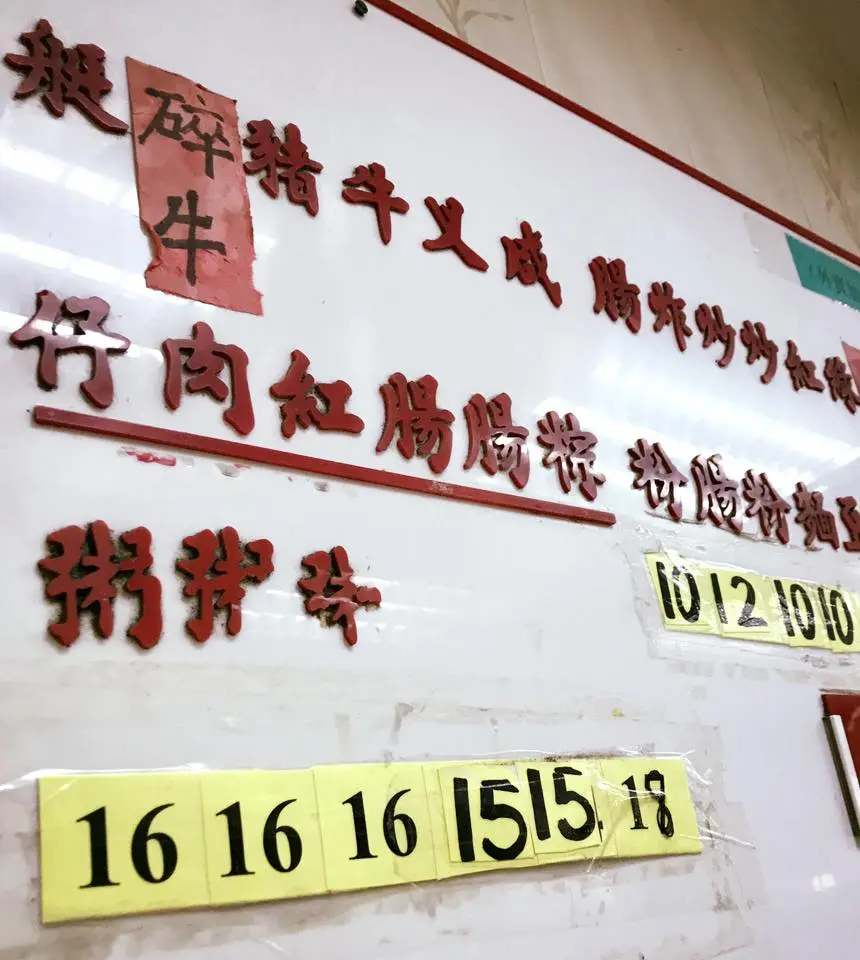 艇仔粥
碎牛肉粥
豬紅粥
牛腸
义腸
咸粽
腸粉
炸腸
炒粉
炒麵
紅豆
綠
10 12 10 10
16 16 16 15 15 18